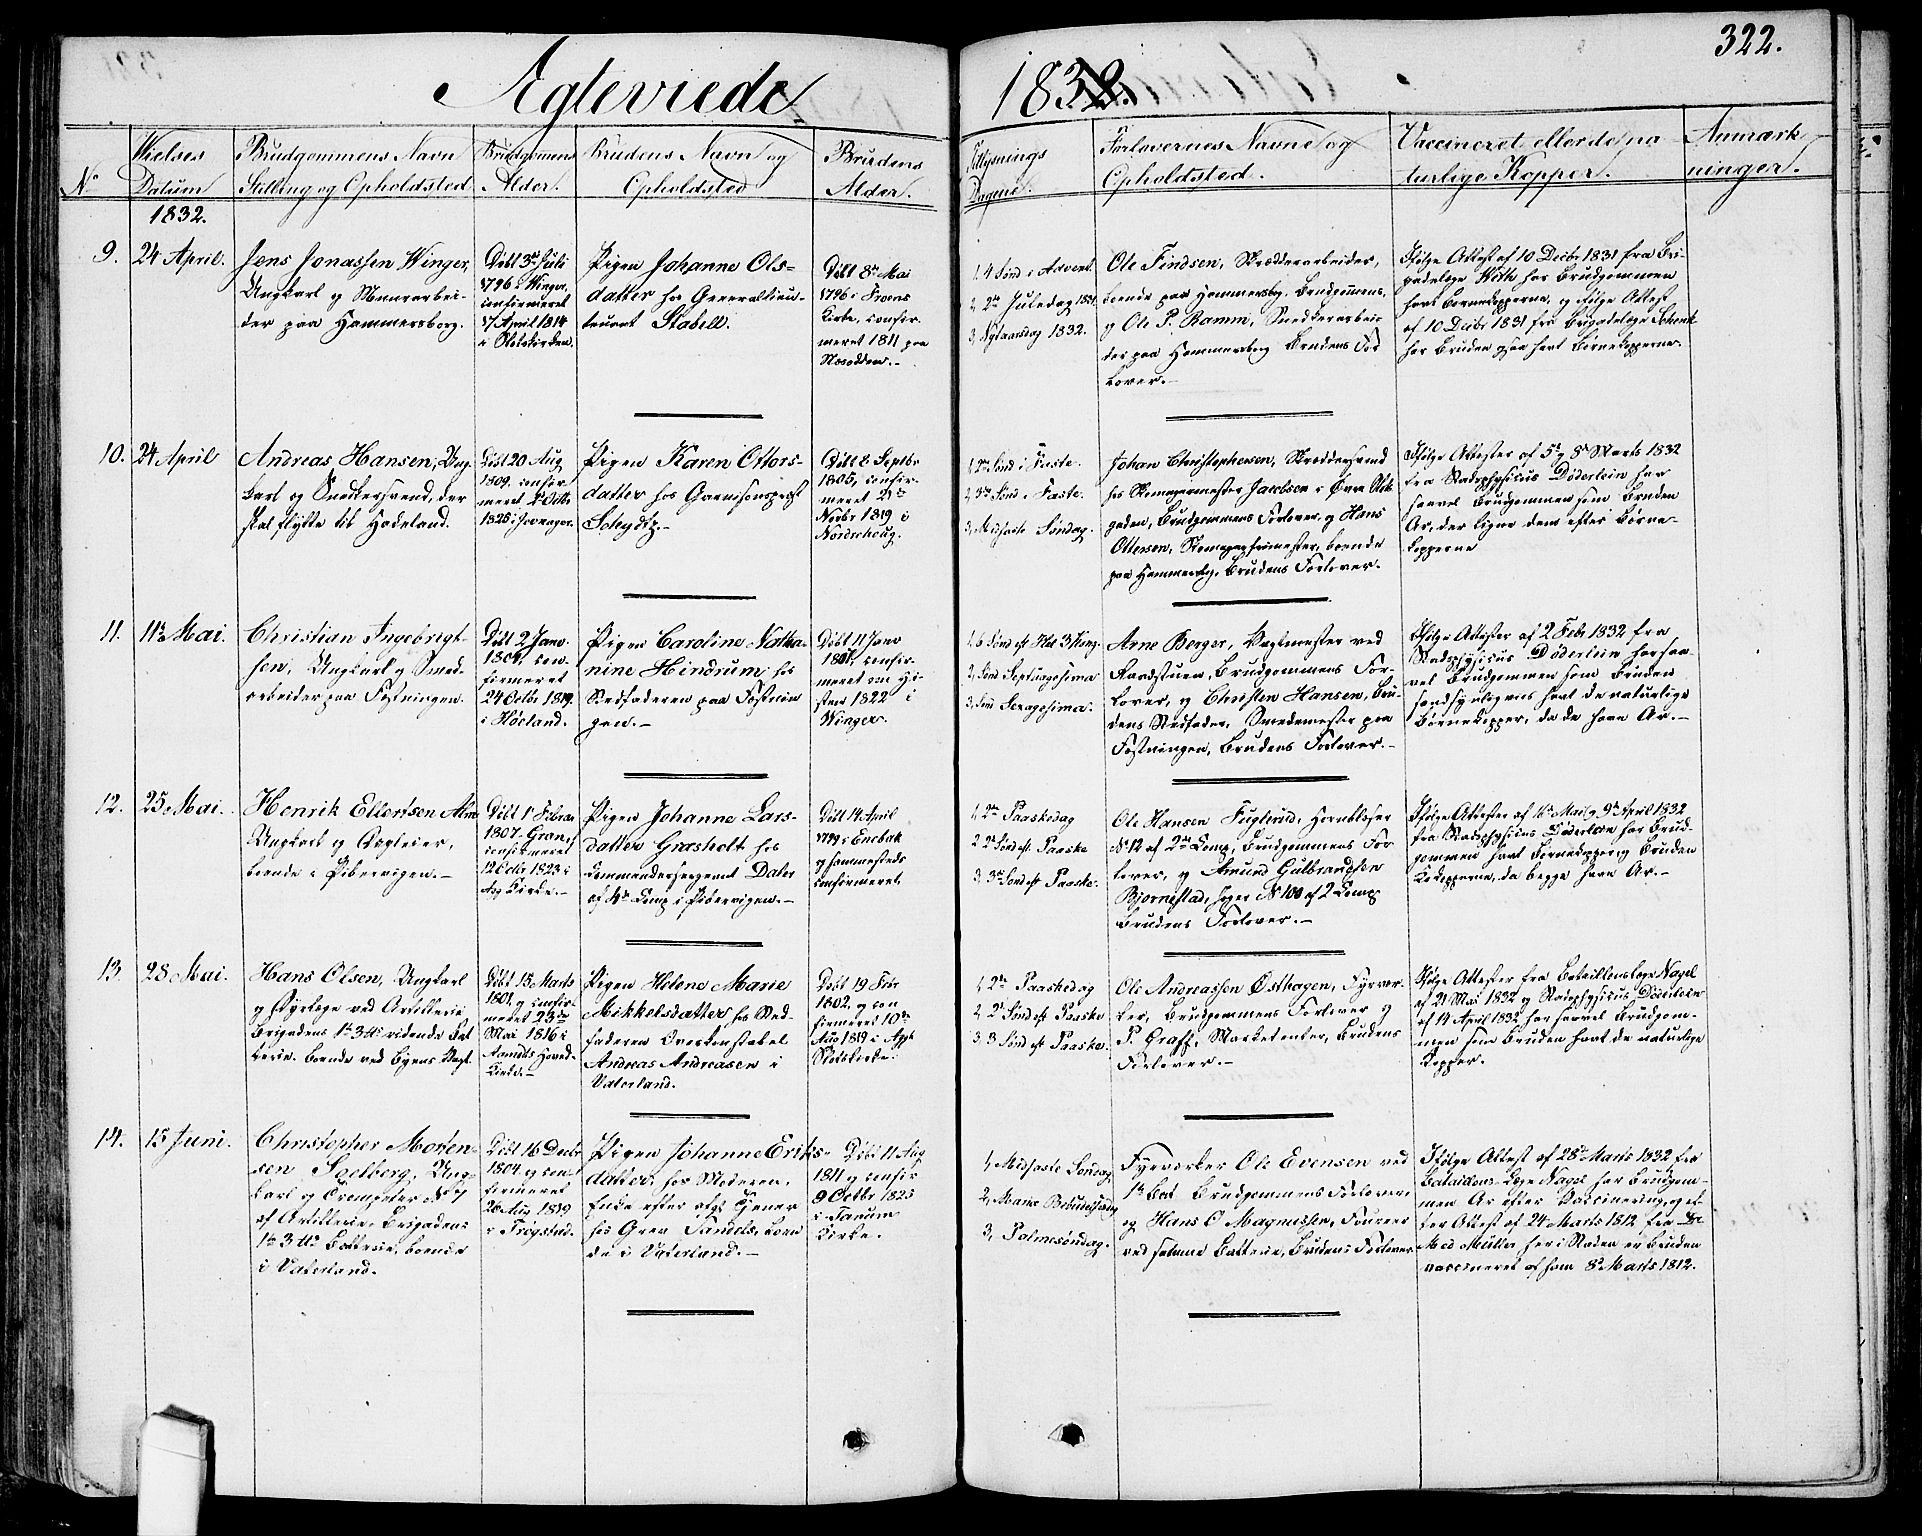 322.
Ægteviede 1832.
No
Vielses Datum
Brudgommens Navn Stilling og Opholdsted
Brudgommens Alder.
Brudens Navn og Opholdsted
Brudens Alder.
Tillysnings Dagene.
Forlovernes Navne og Opholdsted.
Vaccineret eller de naturlige Kopper.
Anmærkninger.
1832.
9. 24 April.
Jens Jonassen Winger,
Ungkarl og Muurarbei-
der paa Hammersborg.
Døbt 3de Juli
1796 i Winger,
confirmeret
17 April 1814
i Slotskirken.
Pigen Johanne Ols-
datter hos Generallieu-
tenant Stabell.
Døbt 8de Mai
1796 i Froens
Kirke, confir-
meret 1811 paa
Næsodden.-
1, 4 Sønd i Advent.
2, 2den Juledag 1831.
3, Nytaarsdag 1832.
Ole Findsen, Skrædderarbeider,
boende paa Hammersbg. Brudgommens,
og Ole P. Ramm, Snedkerarbei-
der paa Hammersborg Brudens For
lover.-
Ifølge Attest af 10 Decbr 1831 fra Bri-
gadelæge Heth har Brudgommen
havt Børnekopperne, og ifølge Attest
af 10 Decbr 1831 fra Brigadelæge Schenk
har Bruden ogsaa havt Børnekopperne.
10. 24 April
Andreas Hansen, Ung-
karl og Snedkersvend, der
skal flytte til Hadeland.
Døbt 20 Aug
1809, confir-
meret 2 Octbr
1825 i Jevnager.
Pigen Karen Ottors-
datter hos Garnisonsprost
Scheydtz.-
Døbt 8 Septbr
1805, confir-
meret 21de
Novbr 1819 i
Nordrehoug.
1, 2den Sønd i Faste.
2, 3die Sønd i Faste.
3, Midfaste Søndag.
Johan Christophersen, Skræddersvend
hos Skomagermester Jacobsen i Øvre Slots
gaden, Brudgommens Forlover, og Hans
Ottersen, Skomagermester, boende
paa Hammersbg, Brudens Forlover.
Ifølge Attester af 5te og 8de Marts 1832
fra Stadsphysicus Döderlein har
saavel Brudgommen som Bruden
Ar, der ligne dem efter Børne-
kopperne
11. 11te Mai.
Christian Ingebrigt-
sen, Ungkarl og Smed-
arbeider paa Fæstningen.
Døbt 2 Janr
1804, con-
firmeret
24 Octbr 1819.
i Høeland.
Pigen Caroline Natha-
nine Hindrum, hos
Stedfaderen paa Fæstnin
gen.-
Døbt 11 Janr
1807, confir-
meret om Hø-
sten 1822 i
Winger.
1, 6 Sønd eft Hel 3 Kong.
2, Sønd Septuagesima
3, Sønd Sexagesima.
Arne Berger, Vagtmester ved
Raadstuen, Brudgommens For-
lover, og Christen Hansen, Bru-
dens Stedfader, Smedemester paa
Fæstningen, Brudens Forlover.-
Ifølge Attester af 2 Febr 1832 fra
Stadsphysicus Döderlein har saa-
vel Brudgommen som Bruden
sandsynligviis havt de naturlige
Børnekopper, da de have Ar.-
12. 25 Mai.
Henrik Ellertsen Alm
Ungkarl og Opløier,
boende i Pibervigen.-
Døbt 1 Febrar
1807 Gran,
confirmeret
12 Octbr 1823 i
Asg Kirke.-
Pigen Johanne Lars-
datter Græsholt hos
Commandersergeant Daler
af 4de Comp i Pibervigen.-
Døbt 14 April
1799 i Enebak
og sammesteds
confirmeret.
1, 2den Paaskedag
2, 2den Sønd eft Paaske
3, 3die Sønd eft Paaske.
Ole Hansen Fuglerud, Hornblæser
No 12 af 2det Comp, Brudgommens For
lover, og Amund Gulbrandsen
Bjørnestad, Jæger No 100 af 2 Comp
Brudens Forlover.-
Ifølge Attester af 16de Mai og 9de April 1832
fra Stadsphysicus Döderlein har Brud-
gommen havt Børnekopper og Bruden
Kokopperne, da begge have Ar.-
13. 28 Mai.
Hans Olsen, Ungkarl
og Dyrlæge ved Artillerie
Brigadens 1ste 3 tt ridende Bat
terie, boende ved Byens Vagt.
Døbt 15 Marts
1801, og confir-
meret 23de
Mai 1816 i
Aamodts Hoved-
Kirke.-
Pigen Helene Marie
Mikkelsdatter hos Sted-
faderen Overkonstabel
Andreas Andreasen i
Vaterland.
Døbt 19 Febr
1802, og con
firmeret 10de
Aug 1819 i Agh
Slotskirke.
1, 2den Paaskedag
2, 2den Sønd eft Paaske
3, 3 Sønd eft Paaske.
Ole Andreassen Østhagen, Fyrvær-
ker, Brudgommens Forlover og
P. Graff, Marketenter, Brudens
Forlover.-
Ifølge Attester fra Bataillonslæge Nagel
af 21 Mai 1832 og Stadsphysicus Döderlein
af 14 April 1832 har saavel Brudgom-
men som Bruden havt de naturlige
Kopper.
14. 15 Juni.
Christopher Morten-
sen Soelberg, Ung-
karl og Trompeter No 7
af Artillerie Brigadens
1ste 3 tt Batterie, boende
i Vaterland.
Døbt 16 Decbr
1804 og con-
firmeret
26 Aug 1819
i Trøgstad.
Pigen Johanne Eriks-
datter, hos Moderen,
Enke efter afgl. Tjener
hos Grev Sandels, boen
de i Vaterland.-
Døbt 11 Aug
1811 og confir
9 Octbr 1825
i Tanum
Kirke.
1, Midfaste Søndag
2, Mariæ Bebudelsesdag
3, Palmesøndag.
Fyrværker Ole Evensen ved
1ste Bat Brudgommens Forlover
og Hans C Magnussen, Foureer
ved samme Batterie, Brudens Forlover.
Ifølge Attest af 28de Marts 1832 fra
Bataillons-Læge Nagel har Brudgom-
men Ar efter Vaccinering, og ef-
ter Attest af 24 Marts 1812 fra Dr
Med Müller her i Staden er Bruden
vaccineret af ham 8de Marts 1812.